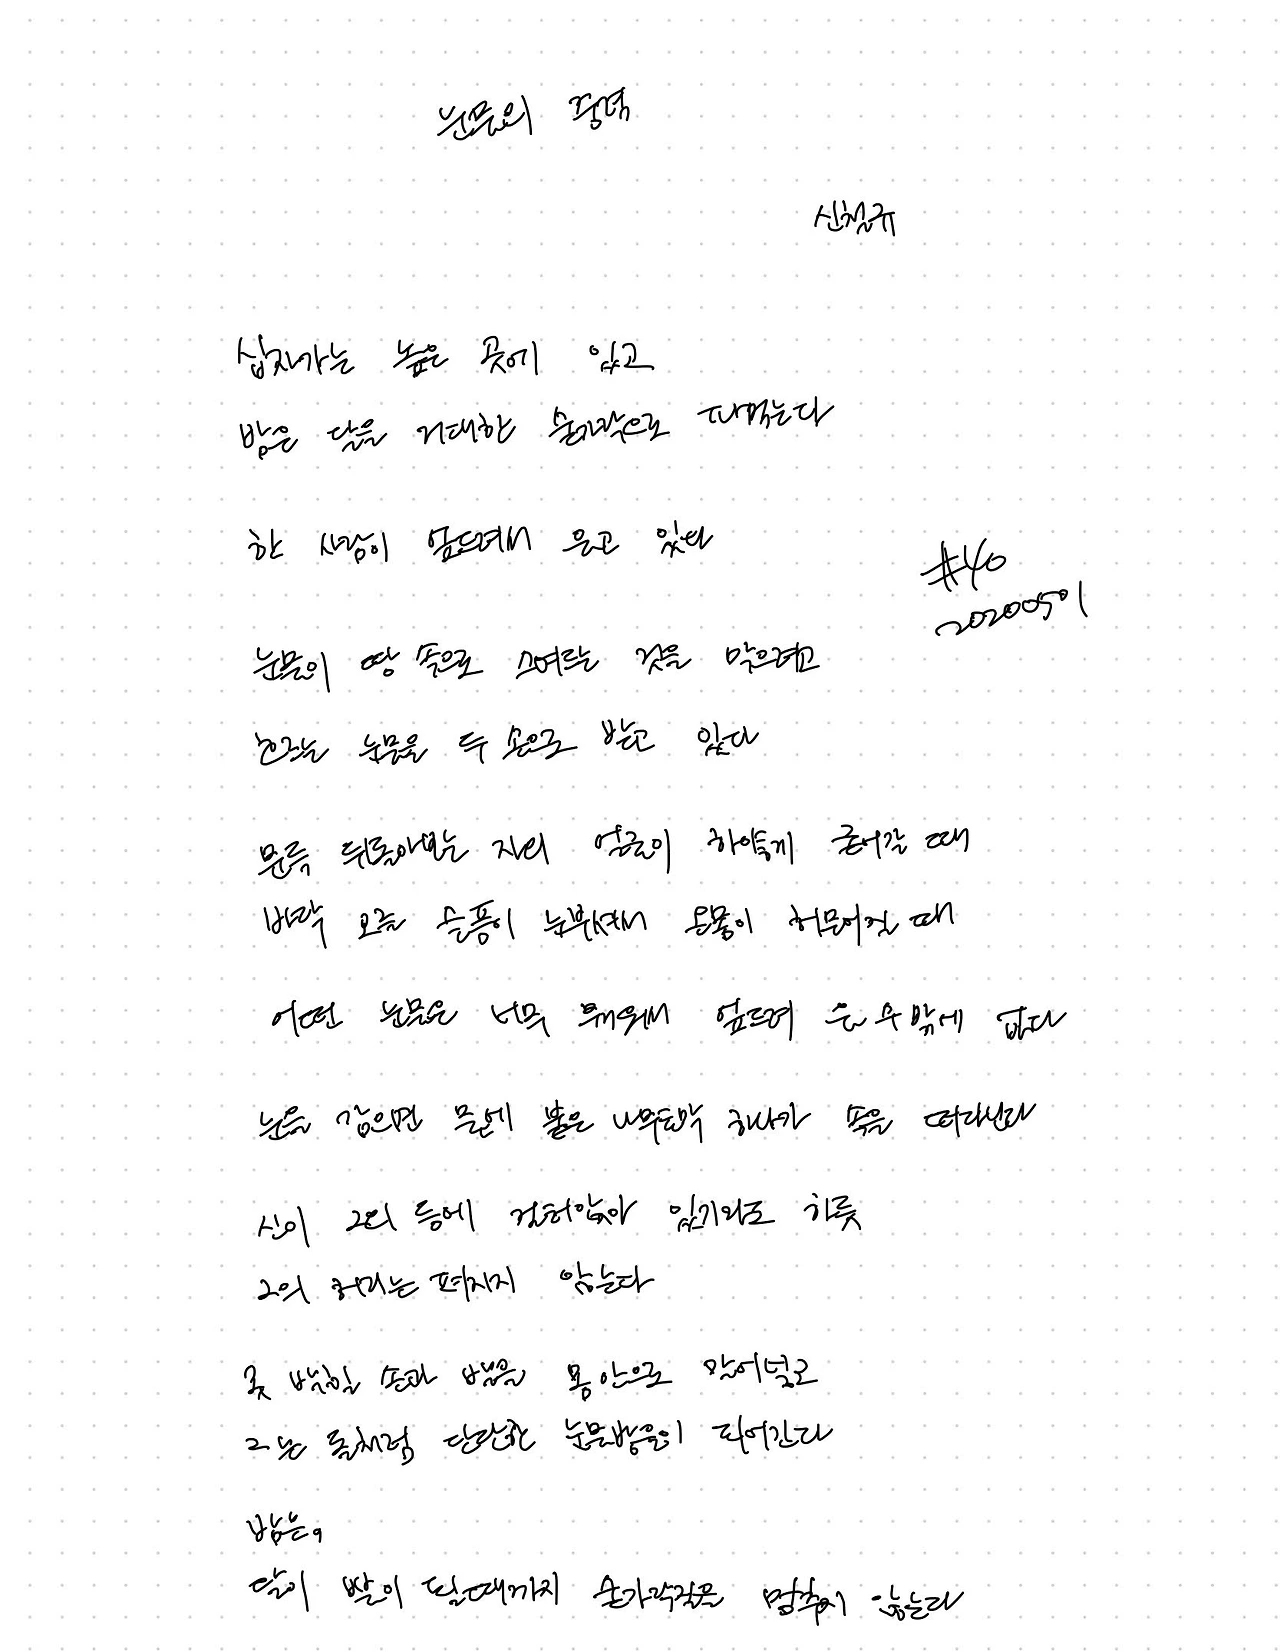 눈물의 중력
신철규
십자가는 높은 곳에 있고
밤은 달을 거대한 숟가락으로 파먹는다
한 사람이 엎드려서 울고 있다
#40
20200501
눈물이 땅 속으로 스며드는 것을 막으려고
흐르는 눈물을 두 손으로 받고 있다
문득 뒤돌아보는 자의 얼굴이 하얗게 굳어갈 때
바닥 모를 슬픔이 눈부셔서 온몸이 허물어질 때
어떤 눈물은 너무 무거워서 엎드려 울 수 밖에 없다
눈을 감으면 물에 불은 나무토막 하나가 속을 떠다닌다
신이 그의 등에 걸터앉아 있기라도 하듯
그의 허리는 펴지지 않는다
못 박힐 손과 발을 몸 안으로 말아넣고
그는 돌처럼 단단한 눈물방울이 되어간다
밤은,
달이 뿔이 될 때까지 숟가락질을 멈추지 않는다